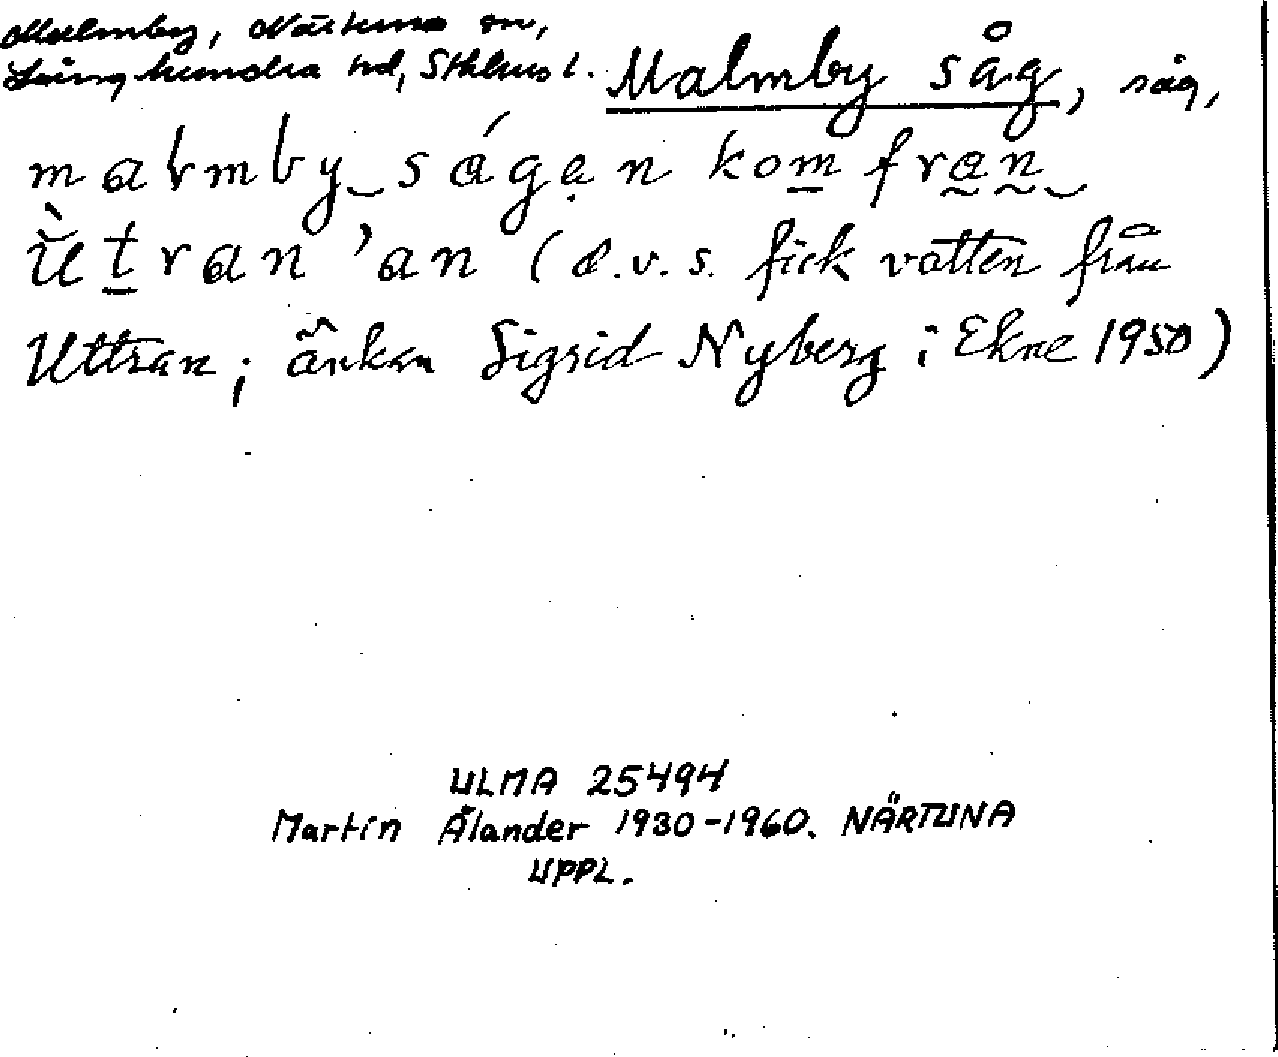 Malmby, Närtuna sn,
Långhundra hd, Sthlms l. Malmby såg, såg,
malmby‿ságen kom fran‿
ùtran 'an (d.v.s. fick vatten från
Uttran; änkan Sigrid Nyberg i Ekne 1950)
ULMA 25494
Martin Ålander 1930-1960. NÄRTUNA
UPPL.